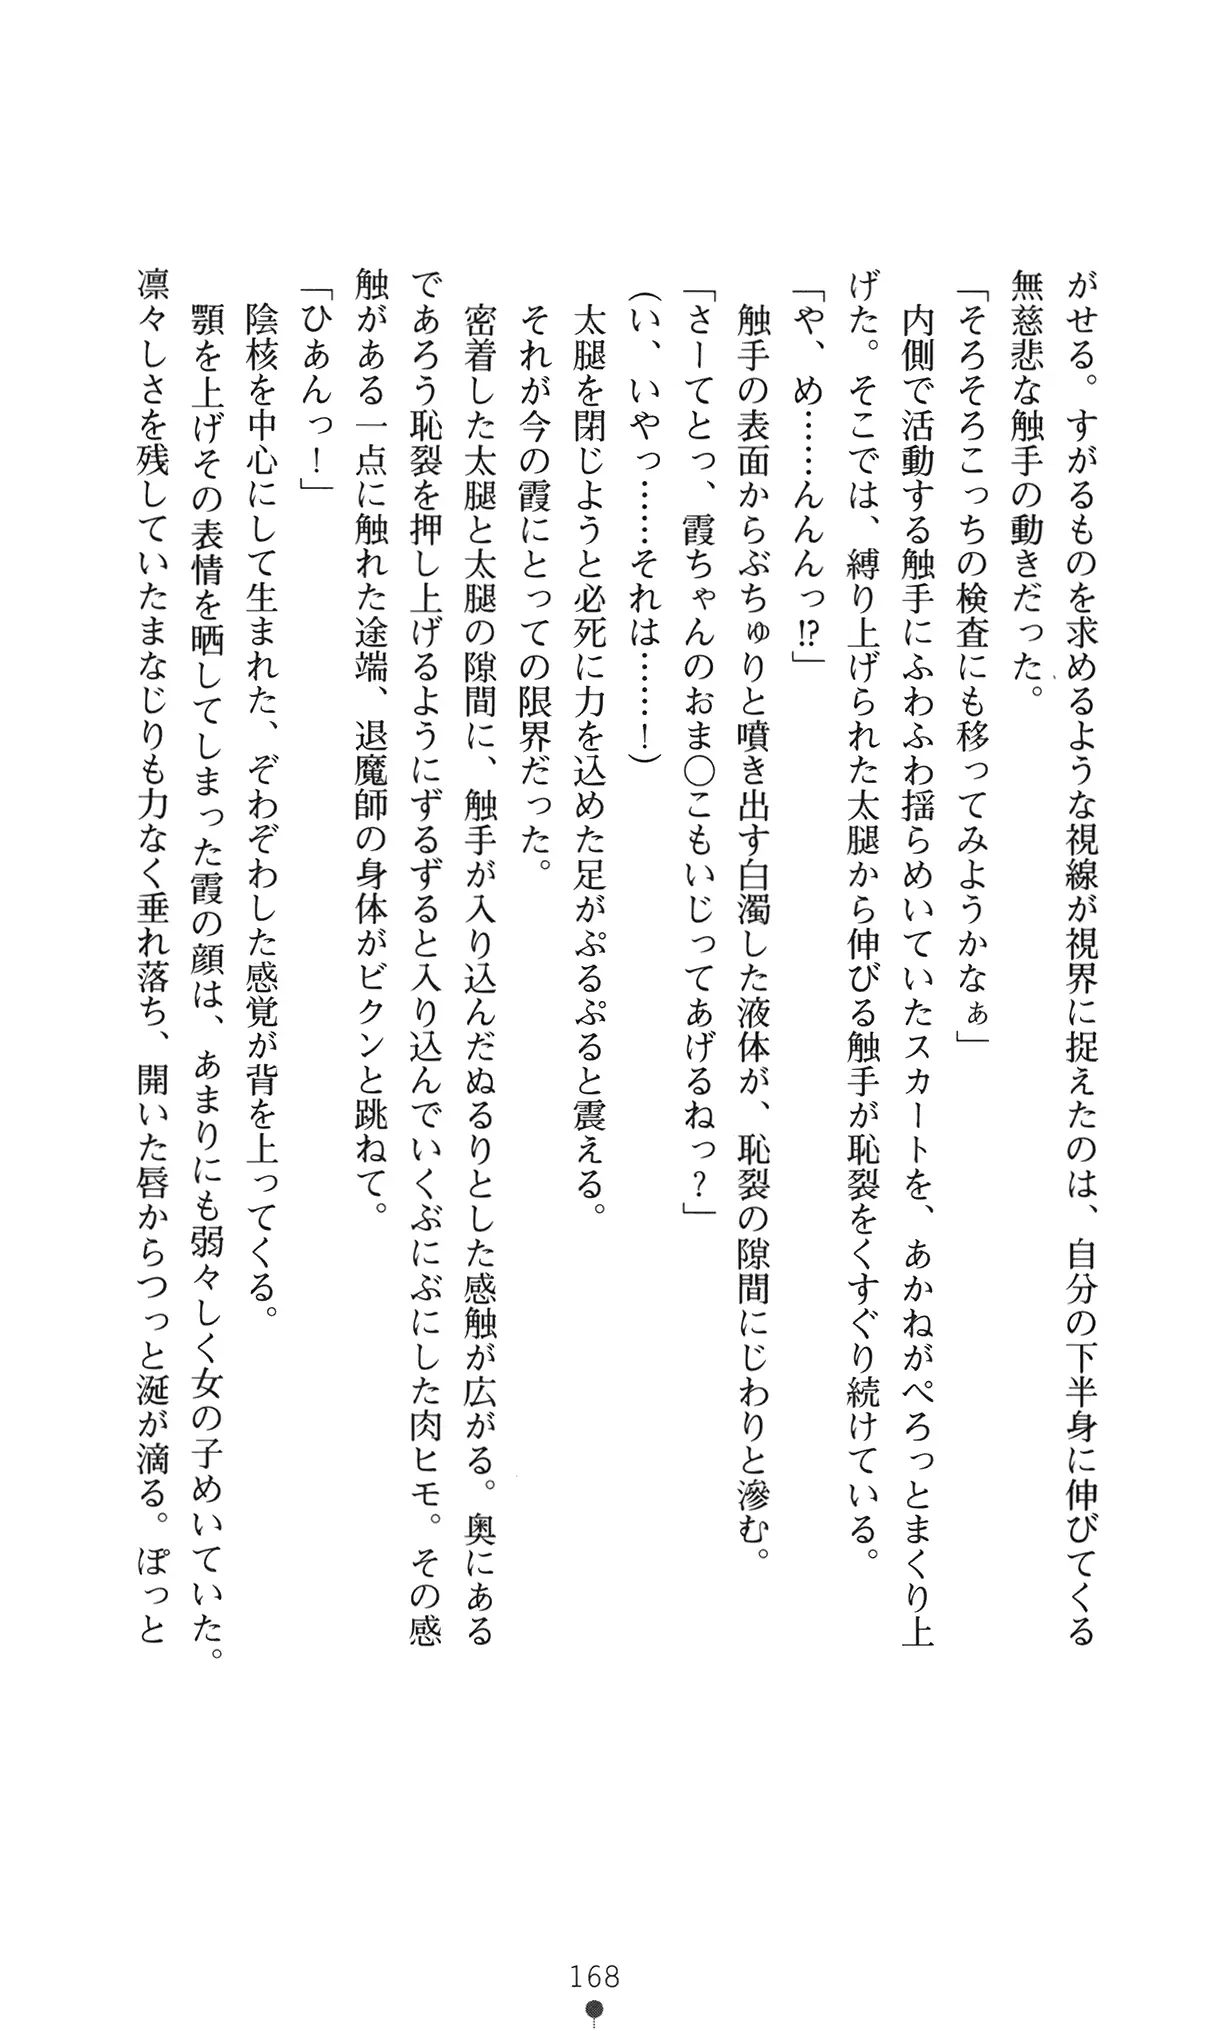 がせる。すがるものを求めるような視線が視界に捉えたのは、自分の下半身に伸びてくる
無慈悲な触手の動きだった。
「そろそろこっちの検査にも移ってみようかなぁ」
内側で活動する触手にふわふわ揺らめいていたスカートを、あかねがぺろっとまくり上
げた。そこでは、縛り上げられた太腿から伸びる触手が恥裂をくすぐり続けている。
「や、め……んんんっ!?」
触手の表面からぶちゅりと噴き出す白濁した液体が、恥裂の隙間にじわりと滲む。
「さーてとっ、霞ちゃんのおま〇こもいじってあげるねっ？」
（い、いやっ……それは……！）
太腿を閉じようと必死に力を込めた足がぷるぷると震える。
それが今の霞にとっての限界だった。
密着した太腿と太腿の隙間に、触手が入り込んだぬるりとした感触が広がる。奥にある
であろう恥裂を押し上げるようにずるずると入り込んでいくぶにぶにした肉ヒモ。その感
触がある一点に触れた途端、退魔師の身体がビクンと跳ねて。
「ひあんっ！」
陰核を中心にして生まれた、ぞわぞわした感覚が背を上ってくる。
顎を上げその表情を晒してしまった霞の顔は、あまりにも弱々しく女の子めいていた。
凛々しさを残していたまなじりも力なく垂れ落ち、開いた唇からつっと涎が滴る。ぽっと
168